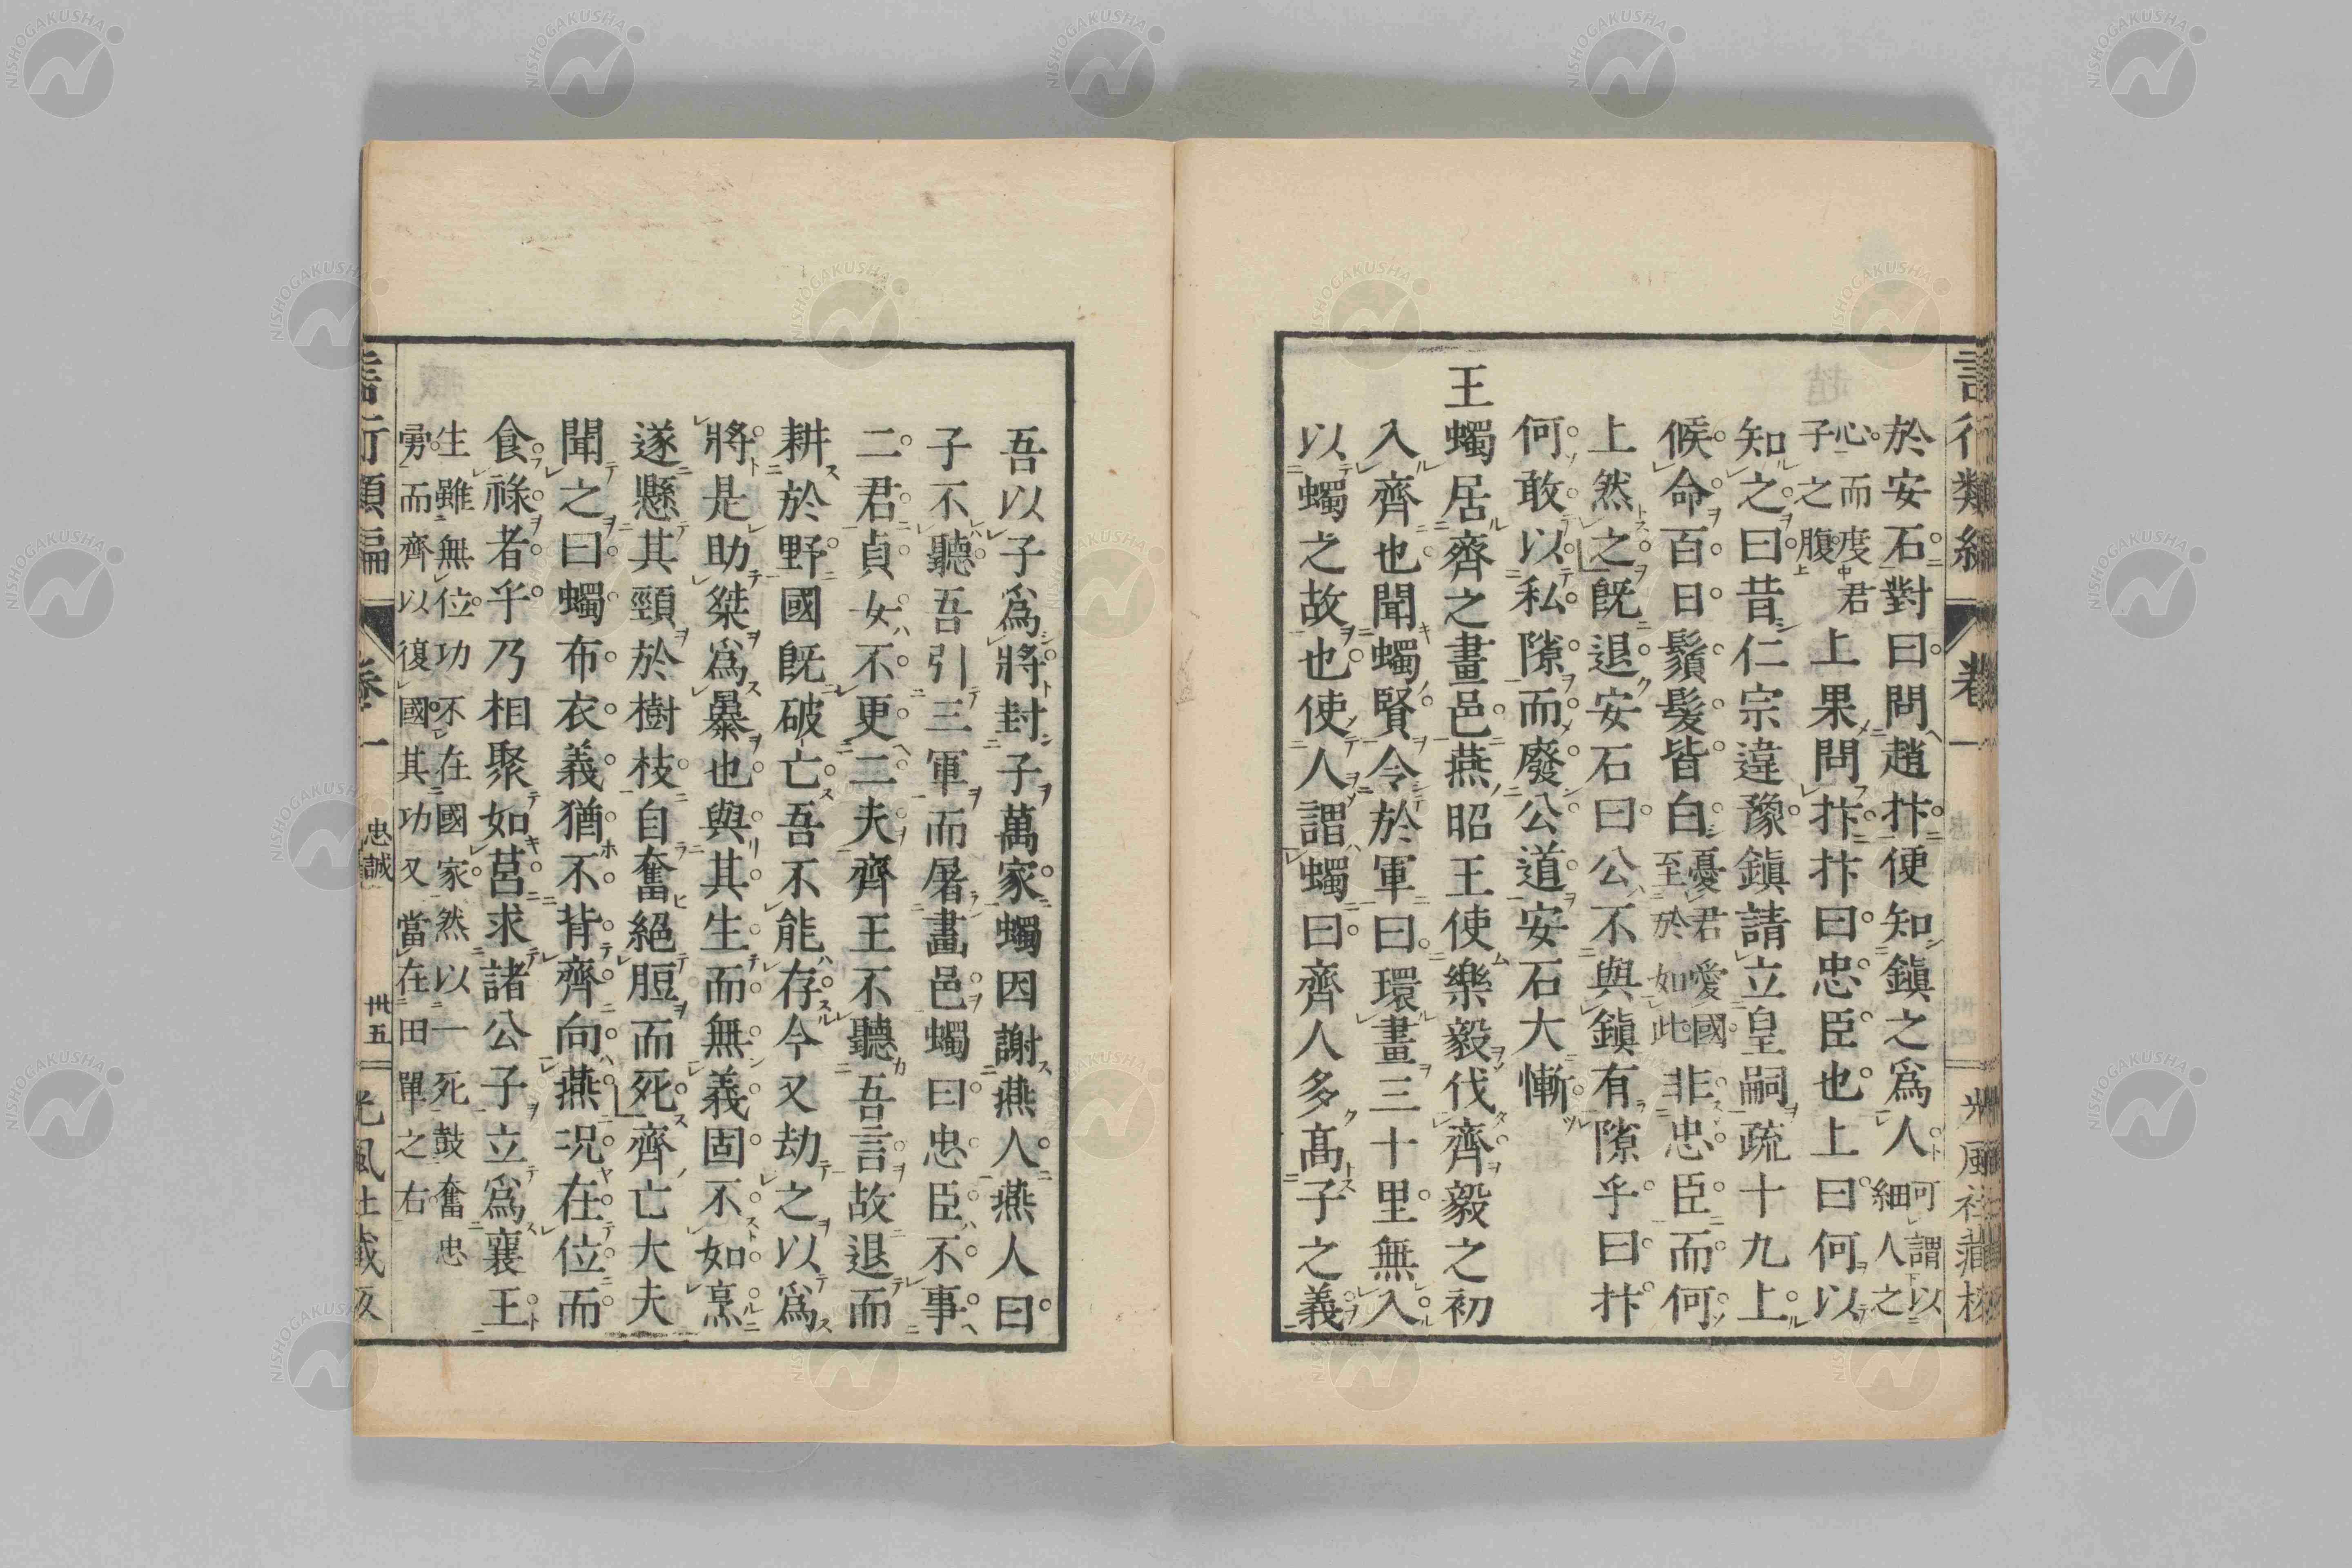 言行類編 卷一 光風社藏梓
於安石對曰問趙抃便知鎭之爲人可謂以細人之
心而度君子之腹上果問抃抃曰忠臣也上曰何以
知之曰昔仁宗違豫鎭請立皇嗣疏十九上
候命百日鬚髮皆白憂君愛國至於如此非忠臣而何
上然之既退安石曰公不與鎭有隙乎曰抃
何敢以私隙而廢公道安石大慚
王蠋居齊之畫邑燕昭王使樂毅伐齊毅之初
入齊也聞蠋賢令於軍曰環畫三十里無入
以蠋之故也使人謂蠋曰齊人多高子之義
吾以子爲將封子萬家蠋因謝燕人燕人曰
子不聽吾引三軍而屠畫邑蠋曰忠臣不事
二君貞女不更二夫齊王不聽吾言故退而
耕於野國既破亡吾不能存今又劫之以爲
將是助桀爲暴也與其生而無義固不如烹
遂懸其頸於樹枝自奮絕脰而死齊亡大夫
聞之曰蠋布衣義猶不背齊向燕況在位而
食祿者乎乃相聚如莒求諸公子立爲襄王
生雖無位功不在國家然以一死鼓奮忠
勇而齊以復國其功又當在田單之右
言行類編 卷一 忠誠 卅五 光風社藏板